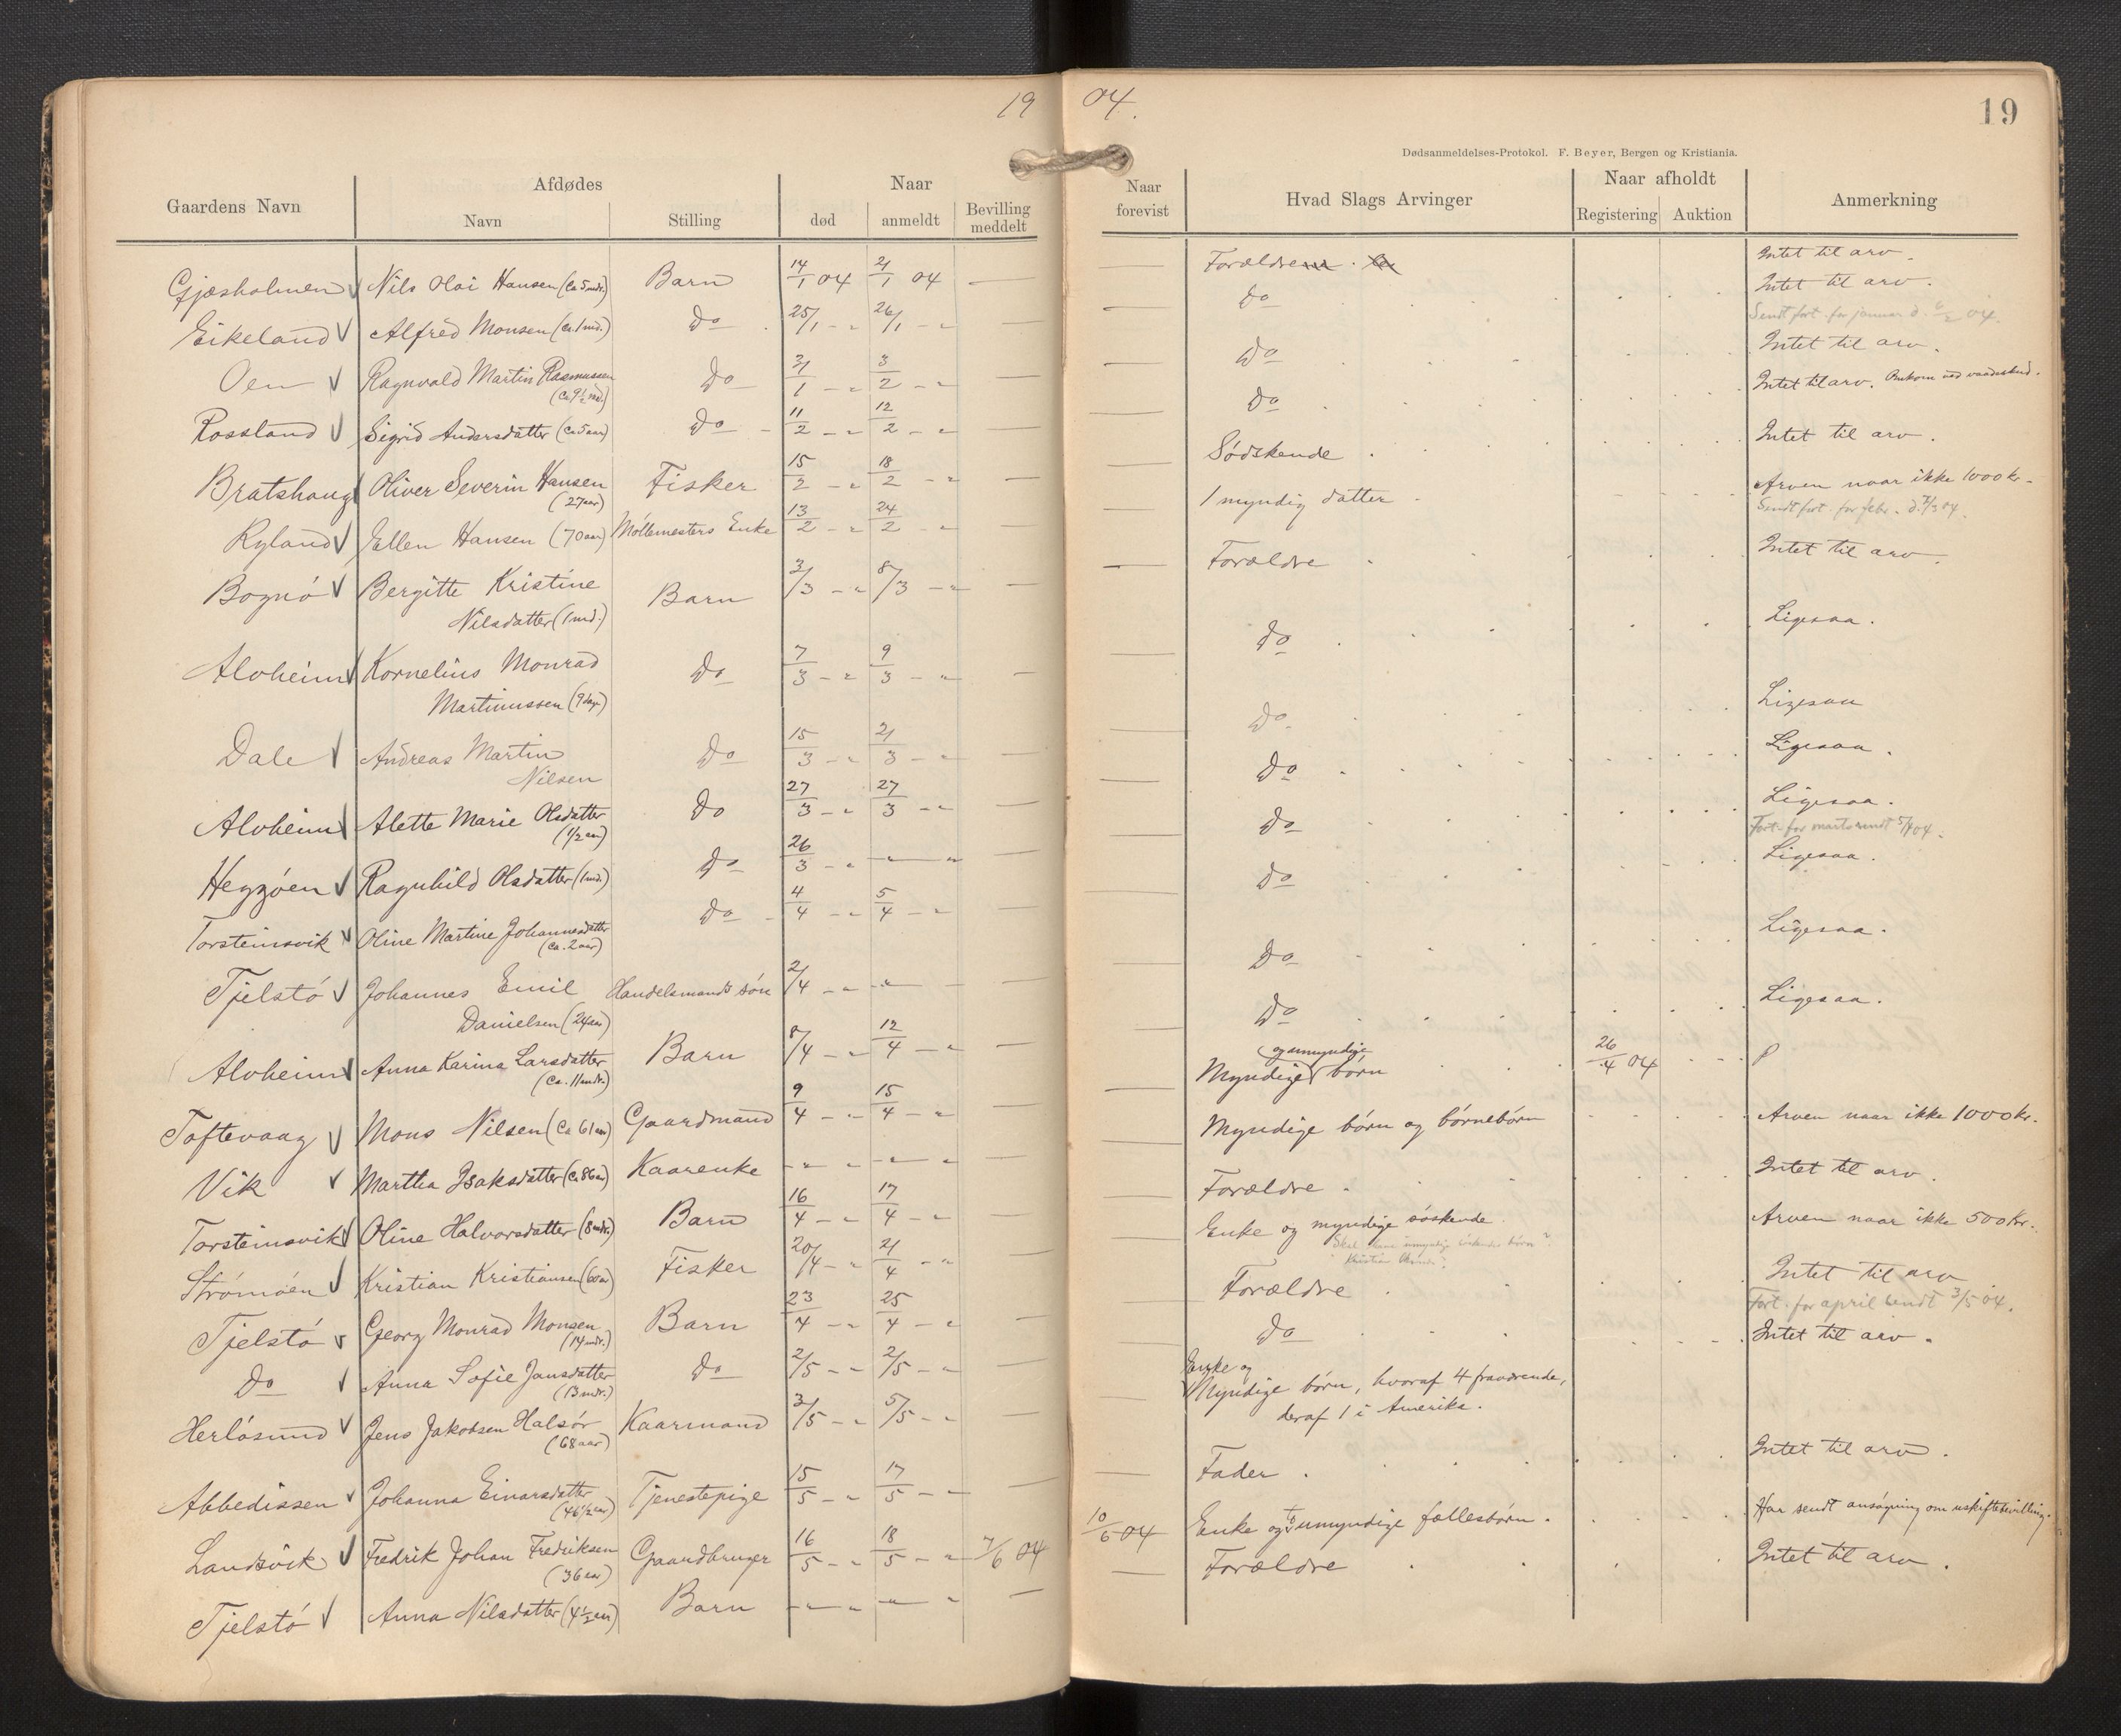 19 04.
19
Dødsanmeldelses-Protokol. F. Beyer, Bergen og Kristiania.
Gaardens Navn | Afdødes | Naar
Navn | Stilling | død | anmeldt | Bevilling meddelt
Naar forevist | Hvad Slags Arvinger | Naar afholdt | Anmerkning
Registering | Auktion
Gjæsholmen √ Nils Olai Hansen (ca 5 mdr.) Barn 14/1 04 21/1 04 —
Eikeland √ Alfred Monsen (ca. 1 md.) Do 25/1 - " 26/1 - " —
Oen √ Ragnvald Martin Rasmussen Do 31/1 - " 3/2 - " —
(ca 9½ md.)
Rossland √ Sigrid Andersdatter (ca 5 aar) Do 11/2 - " 12/2 - " —
Bratshaug √ Oliver Severin Hansen Fisker 15/2 - " 18/2 - " —
(27 aar)
Ryland √ Ellen Hansen (70 aar) Möllemesters Enke 13/2 - " 24/2 - " —
Bognö √ Bergitte Kristine Barn 3/3 - " 8/3 - " —
Nilsdatter (1 md.)
Alvheim √ Kornelius Monrad Do 7/3 - " 9/3 - " —
Martinussen (9 dage)
Dale √ Andreas Martin Do 15/3 - " 21/3 - " —
Nilsen
Alvheim √ Alette Marie Olsdatter Do 27/3 - " 27/3 - " —
(1/2 aar)
Hegzöen √ Ragnhild Olsdatter (1 md.) Do 26/3 - " — " — " —
Torsteinsvik √ Oline Martine Johannesdatter Do 4/4 - " 5/4 - " —
(ca. 2 aar)
Tjelstö √ Johannes Emil Handelsmands sön 2/4 - " — " — —
Danielsen (24 aar)
Alvheim √ Anna Karina Larsdatter Barn 8/4 - " 12/4 - " —
(ca. 11 mdr.)
Toftevaag √ Mons Nilsen (ca 61 aar) Gaardmand 9/4 - " 15/4 - " —
Vik √ Martha Isaksdatter (ca 86 aar) Kaarenke - " - " - " - " —
Torsteinsvik √ Oline Halvorsdatter (8 mdr.) Barn 16/4 - " 17/4 - " —
Strömöen √ Kristian Kristiansen (60 aar) Fisker 20/4 - " 21/4 - " —
Tjelstö √ Georg Monrad Monsen Barn 23/4 - " 25/4 - " —
(14 mdr.)
Do √ Anna Sofie Jansdatter Do 2/5 - " 2/5 - " —
(13 mdr.)
Herlösund √ Jens Jakobsen Halsör Kaarmand 3/5 - " 5/5 - " —
(68 aar)
Abbedissen √ Johanna Einarsdatter Tjenestepige 15/5 - " 17/5 - " —
(46 1/2 aar)
Landsvik √ Fredrik Johan Fredriksen Gaardbruger 16/5 - " 18/5 - " 7/6 04
(36 aar)
Tjelstö √ Anna Nilsdatter (4½ aar) Barn - " - " - " - " —
— Forældre Intet til arv.
— Do Intet til arv.
Sendt fort. for januar d. 6/2 04.
— Do Intet til arv.
— Do Intet til arv. Omkom ved vaadeskud.
— Södskende Intet til arv.
— 1 myndig datter Arven naar ikke 1000 kr.
Sendt fort. for febr. d. 7/3 04.
— Forældre Intet til arv.
— Do Ligesaa.
— Do Ligesaa
— Do Ligesaa.
— Do Ligesaa.
Fort. for marts sendt 5/4 04.
— Do Ligesaa.
— Do Ligesaa.
— Do Ligesaa.
og umyndige
— Myndige börn 26/4 04
— Myndige börn og börnebörn Arven naar ikke 1000 kr.
— Forældre Intet til arv.
— Enke og myndige söskende Arven naar ikke 500 kr.
— Forældre Intet til arv
Fort. for april sendt 3/5 04.
— Do Intet til arv.
Enke og
— Myndige börn, hvoraf 4 fraværende,
deraf 1 i Amerika.
— Fader Intet til arv.
10/6 04 Enke og to umyndige fællesbörn. Har sendt ansögning om uskiftebevilling.
— Forældre Intet til arv.